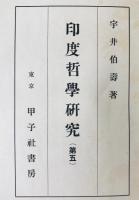 宇井伯壽著
印度哲學研究
(第五)
東京
甲子社書房